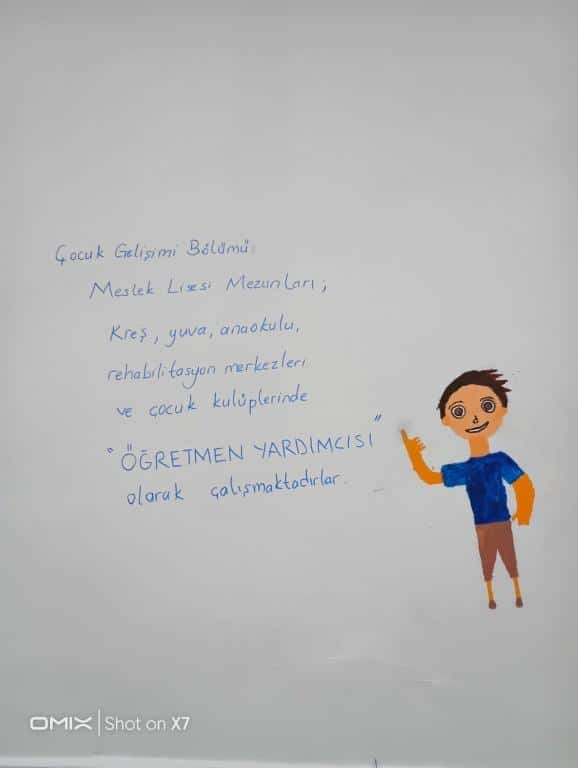 Çocuk Gelişimi Bölümü:
Meslek Lisesi Mezunları;
Kreş, yuva, anaokulu,
rehabilitasyon merkezleri
ve çocuk kulüplerinde
"ÖĞRETMEN YARDIMCISI"
olarak çalışmaktadırlar.
OMIX | Shot on X7